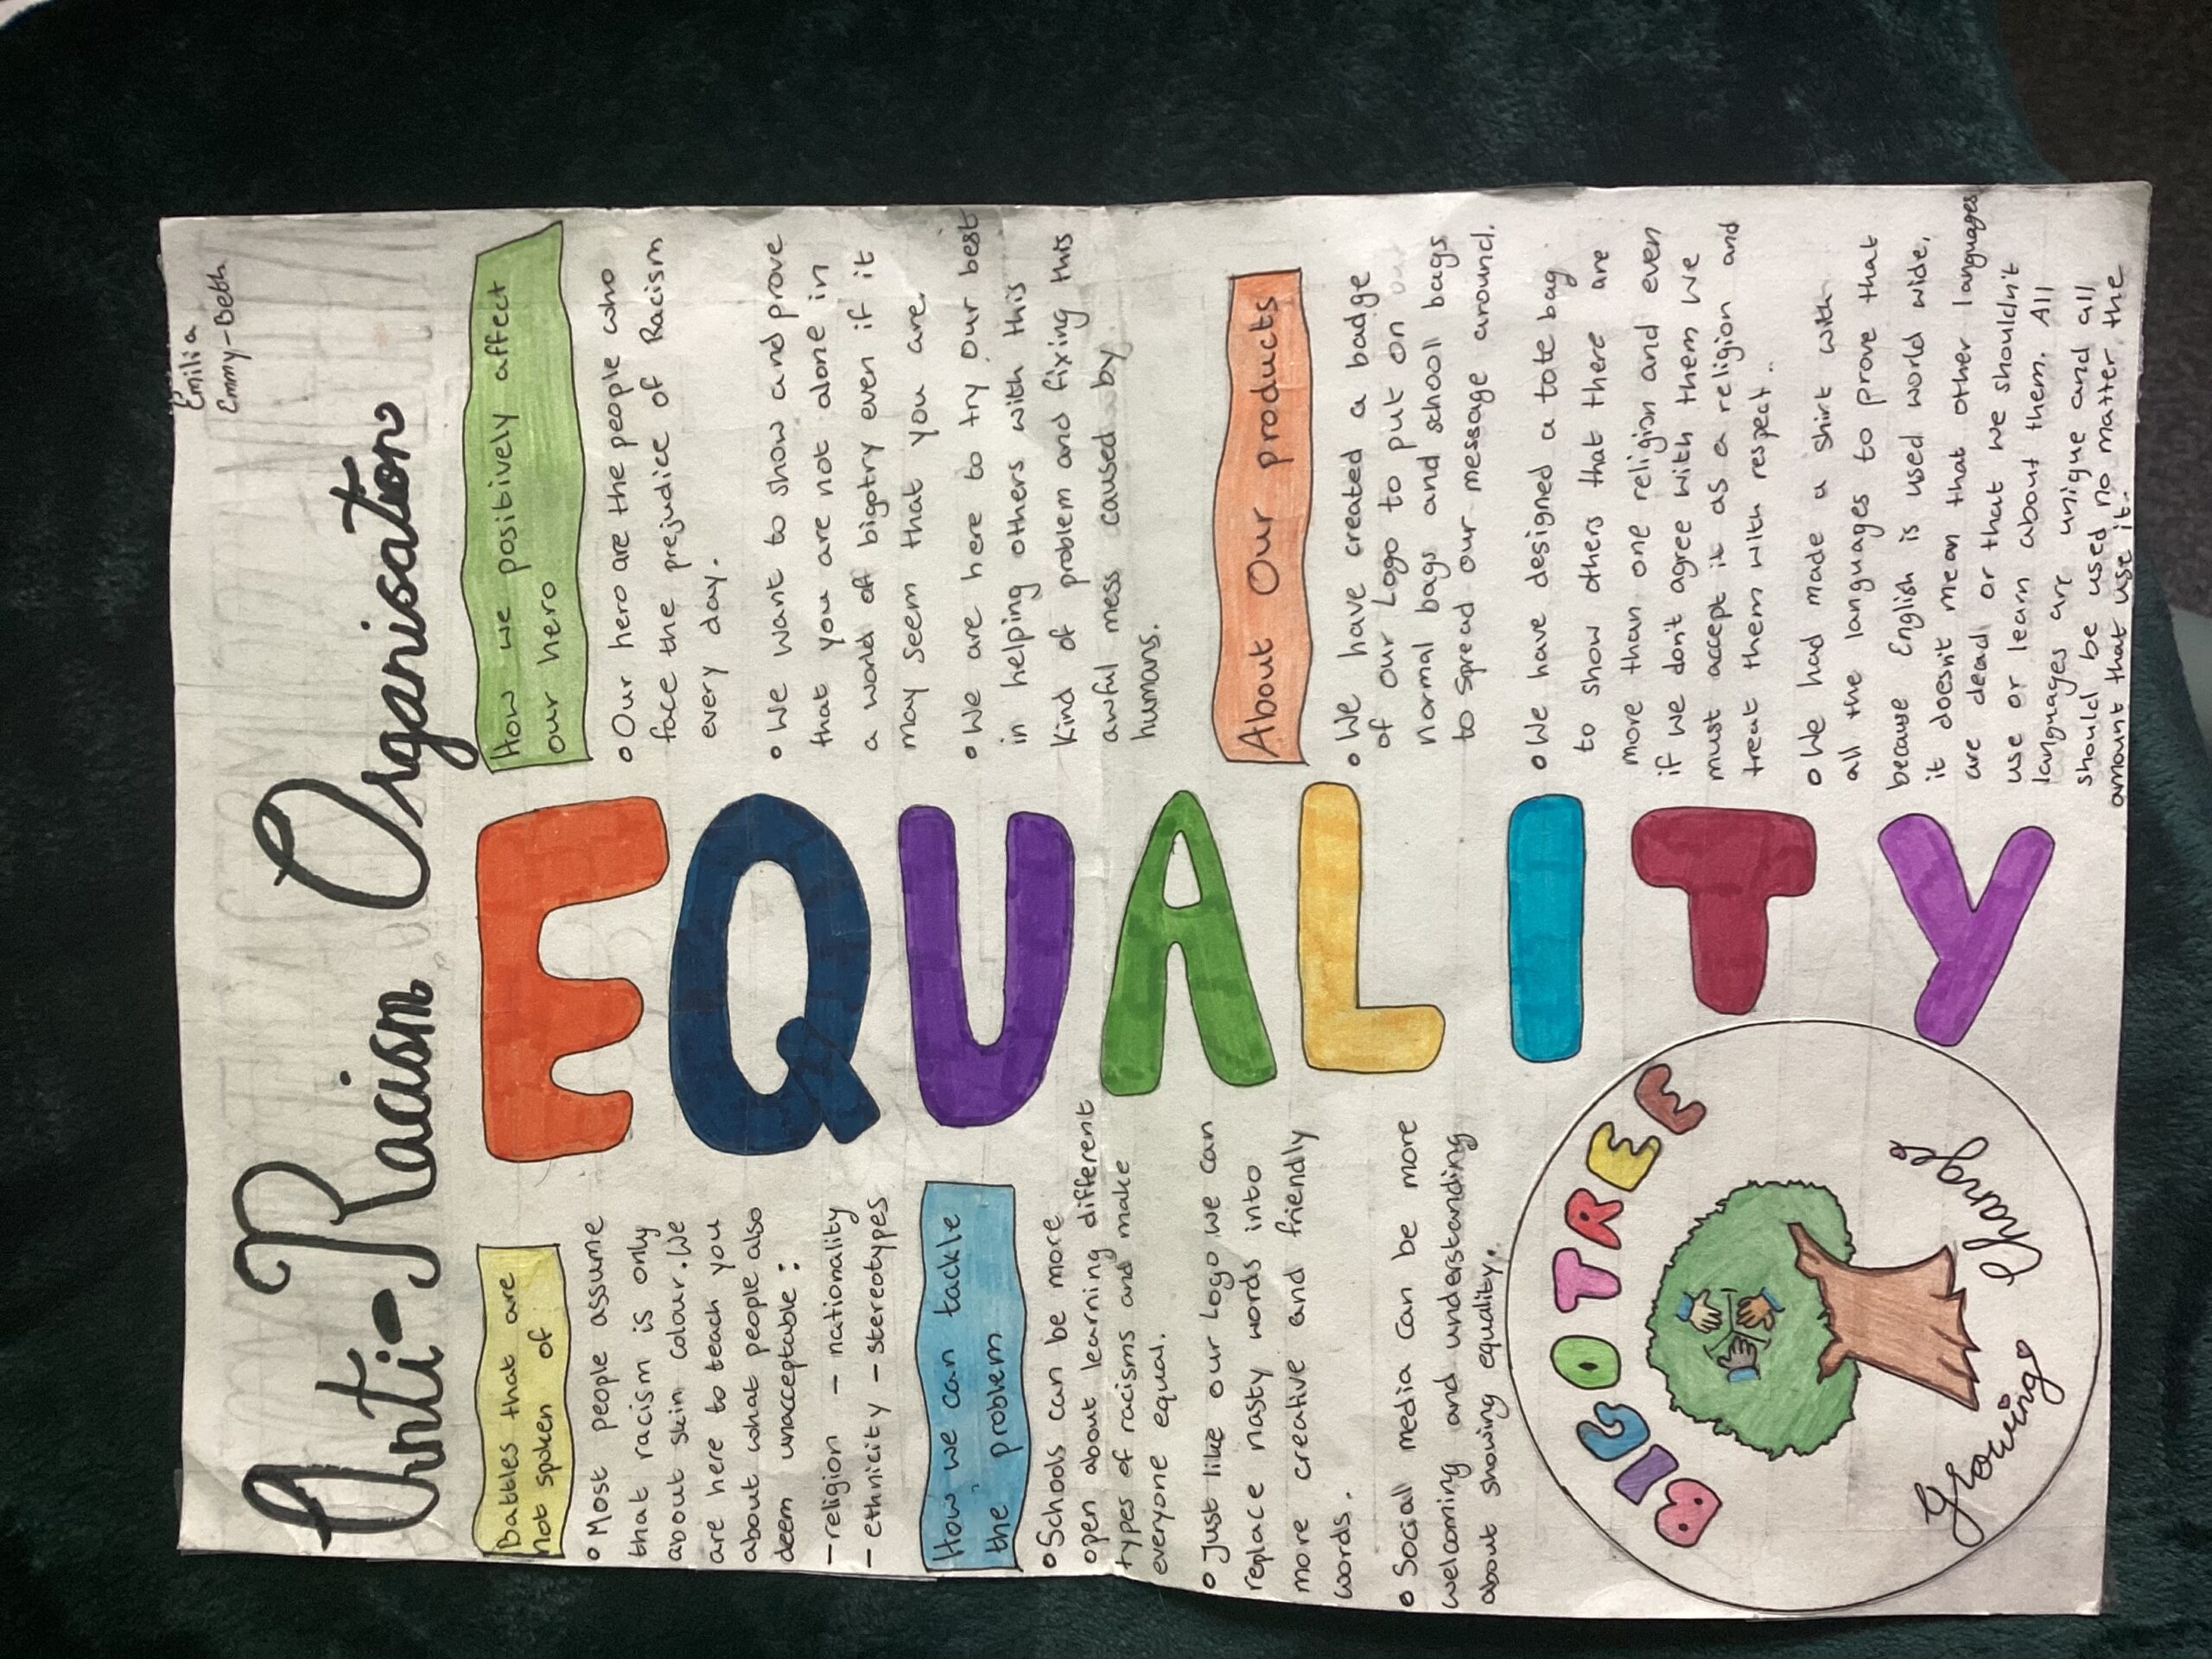 Emilia
Emmy-Beth
Anti-Racism Organisation
EQUALITY
Battles that are
not spoken of
• Most people assume
that racism is only
about skin colour. We
are here to teach you
about what people also
deem unacceptable:
- religion - nationality
- ethnicity - stereotypes
How we can tackle
the problem
• Schools can be more
open about learning different
types of racisms and make
everyone equal.
• Just like our logo we can
replace nasty words into
more creative and friendly
words.
• Social media can be more
welcoming and understanding
about showing equality.
BIGOTREE
Growing Change
How we positively affect
our hero
• Our hero are the people who
face the prejudice of Racism
every day.
• We want to show and prove
that you are not alone in
a world of bigotry even if it
may seem that you are
• We are here to try our best
in helping others with this
kind of problem and fixing this
awful mess caused by
humans.
About Our products
• We have created a badge
of our Logo to put on our
normal bags and school bags
to spread our message around.
• We have designed a tote bag
to show others that there are
more than one religion and even
if we don't agree with them we
must accept it as a religion and
treat them with respect..
• We had made a shirt with
all the languages to prove that
because English is used world wide,
it doesn't mean that other languages
are dead or that we shouldn't
use or learn about them. All
languages are unique and all
should be used no matter the
amount that use it..